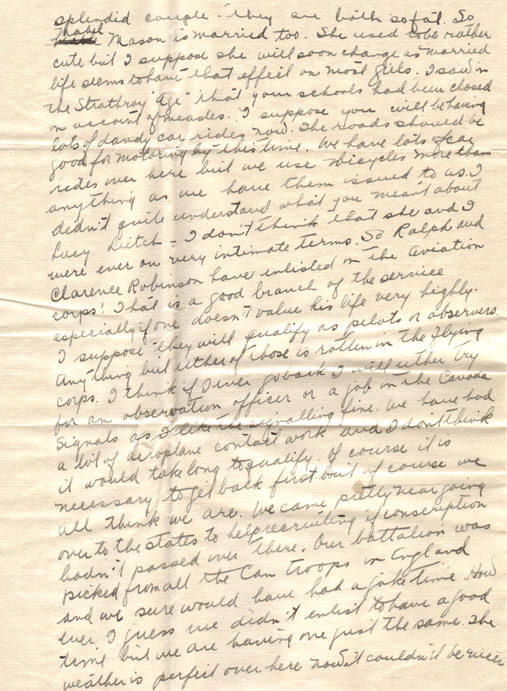 splendid couple - they are both so fat. So
Mabel Mason is married too. She used to be rather
cute but I suppose she will soon change as married
life seems to have that effect on most girls. I saw in
the Strathroy "Age" that your schools had been closed
on account of measles. I suppose you will be having
lots of dandy car rides now. The roads should be
good for motoring by this time. We have lots of car
rides over here but we use bicycles more than
anything as we have them issued to us. I
didn't quite understand what you meant about
Lucy Dutch - I don't think that she and I
were ever on very intimate terms. So Ralph and
Clarence Robinson have enlisted in the Aviation
Corps! That is a good branch of the service
especially if one doesn't value his life very highly.
I suppose they will qualify as pilots or observers.
Anything but either of those is rotten in the Flying
Corps. I think if I ever go back I will either try
for an observation officer or a job in the Canada
Signals as I like the signalling fine. We have had
a lot of aeroplane contact work and I don't think
it would take long to qualify. Of course it is
necessary to get back first but of course we
all think we are. We came pretty near going
over to the states to help recruiting if conscription
hadn't passed over there. Our battalion was
picked from all the Can troops in England
and we sure would have had a joke time. How
ever I guess we didn't enlist to have a good
time but we are having one just the same. The
weather is perfect over here now it couldn't be nicer